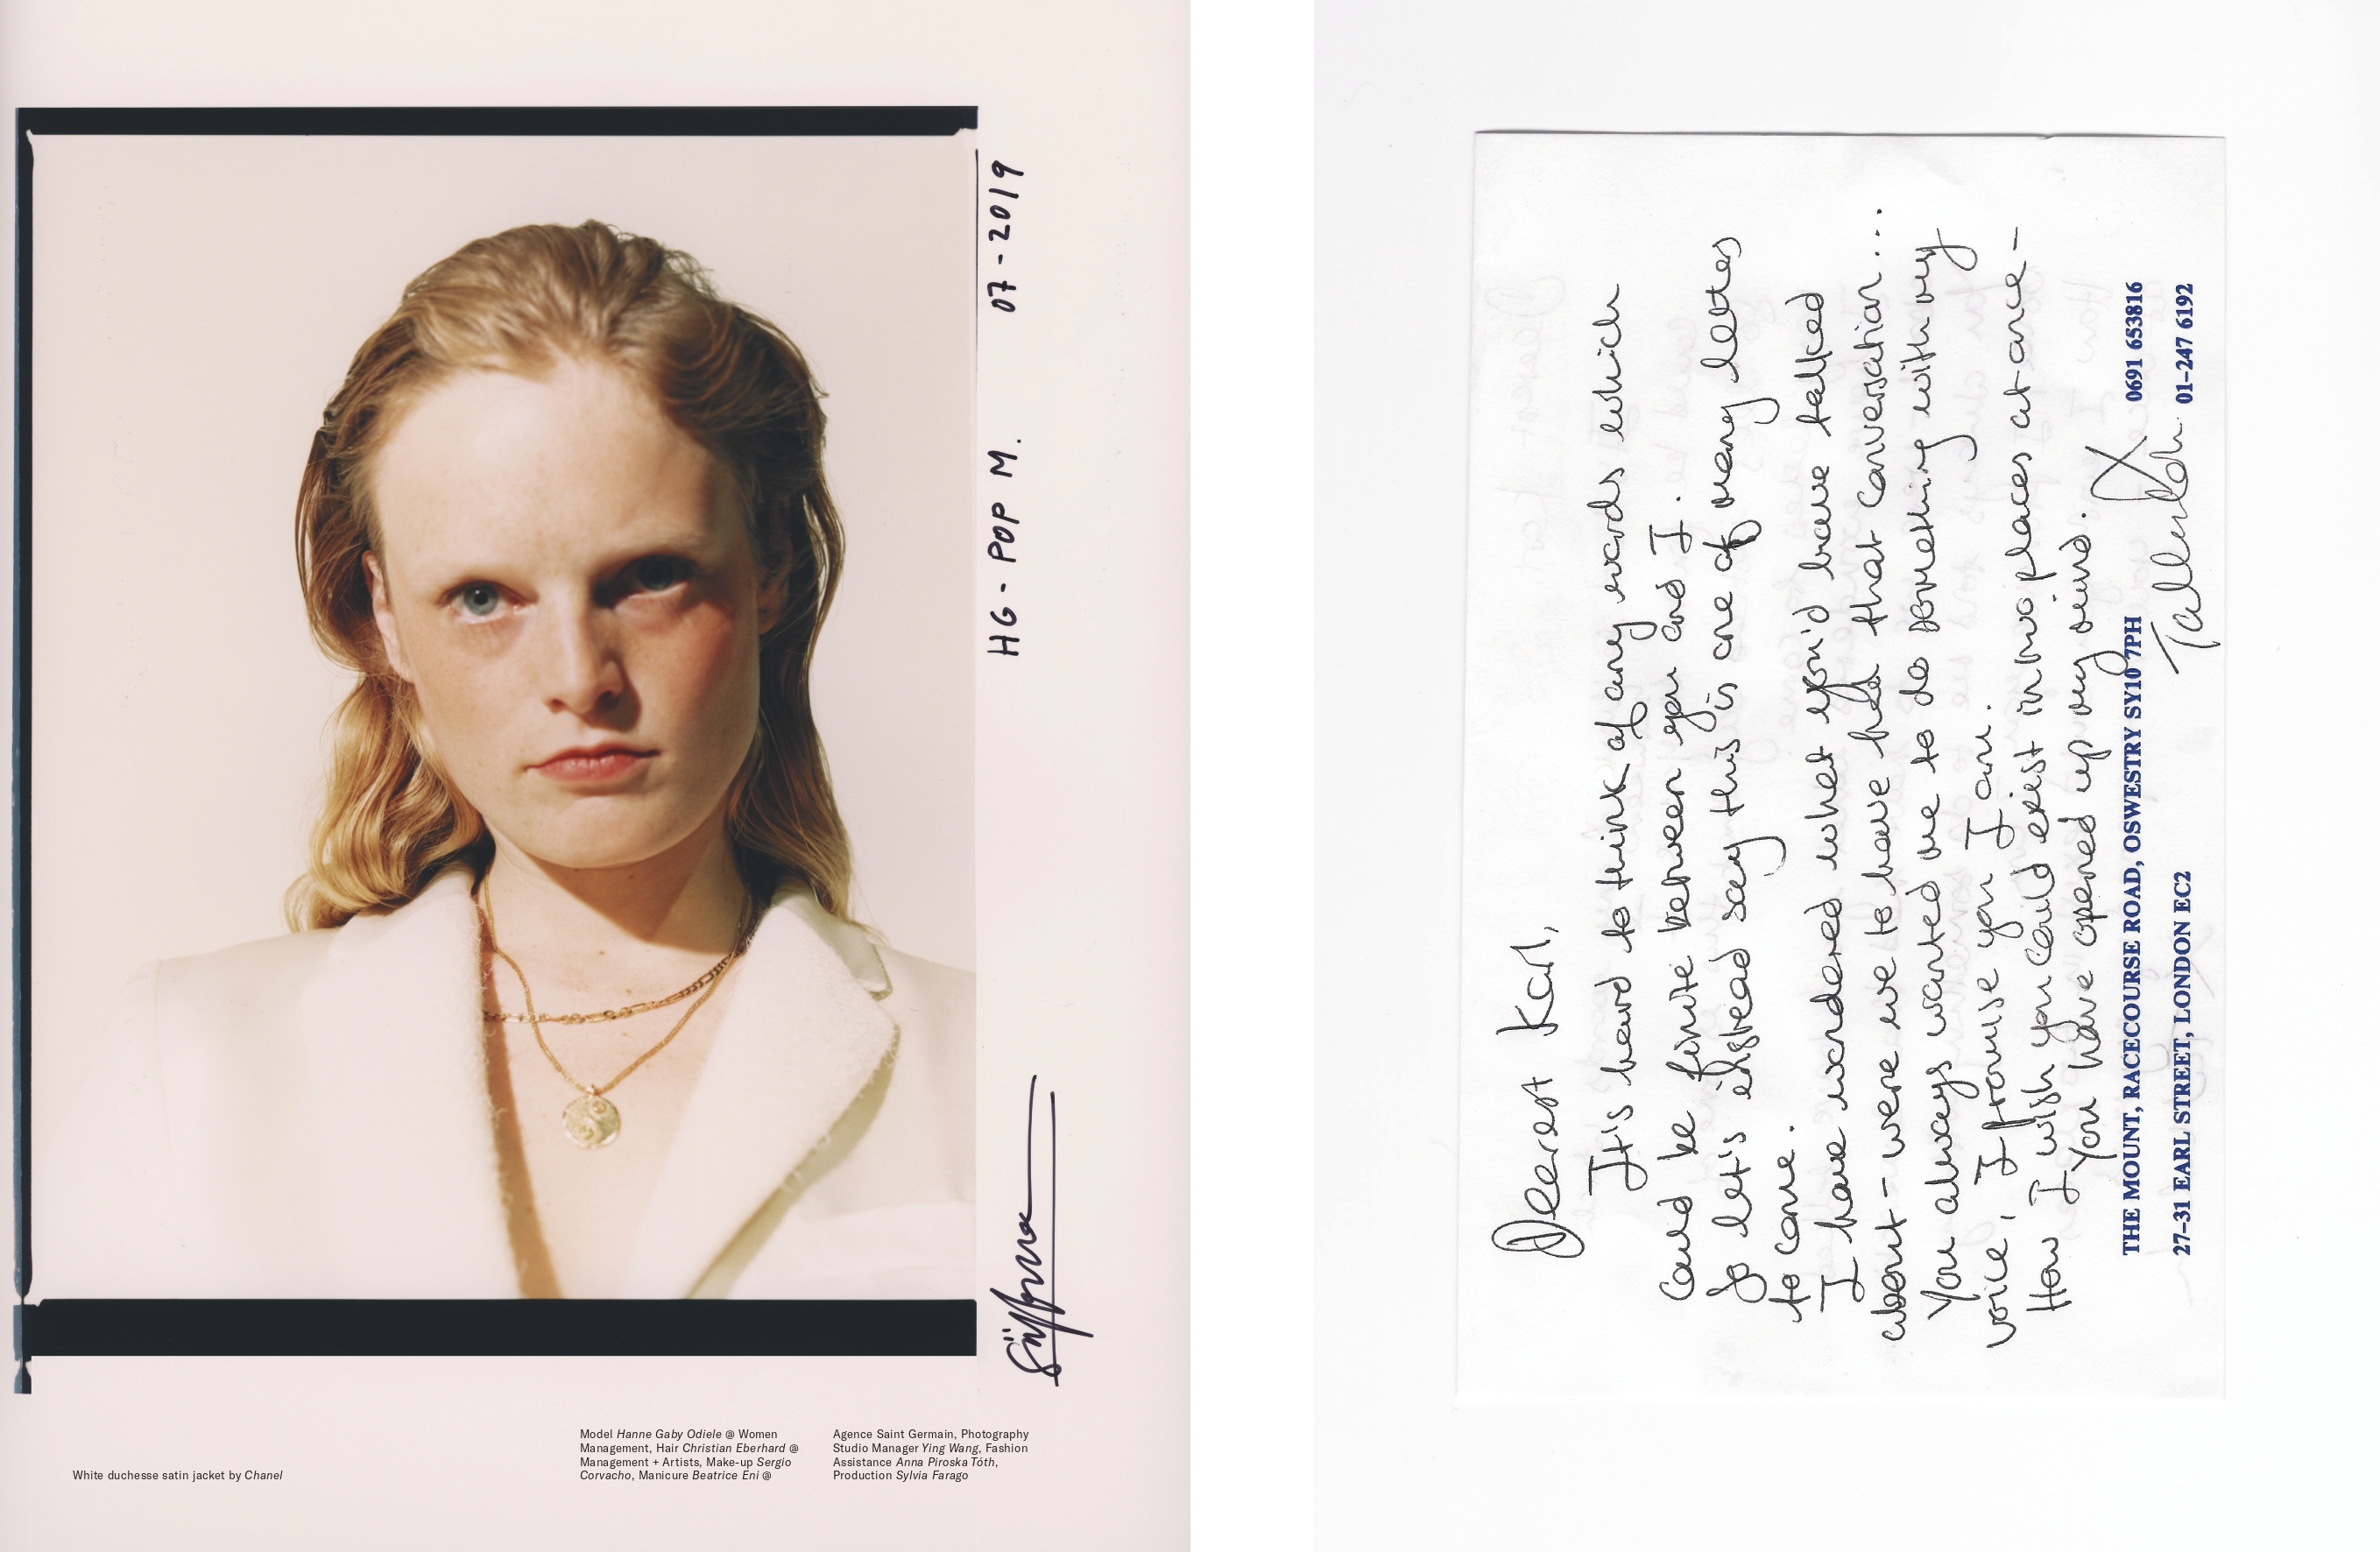 07-2019
HG - POP M.
White duchesse satin jacket by Chanel
Model Hanne Gaby Odiele @ Women
Management, Hair Christian Eberhard @
Management + Artists, Make-up Sergio
Corvacho, Manicure Beatrice Eni @
Agence Saint Germain, Photography
Studio Manager Ying Wang, Fashion
Assistance Anna Piroska Tóth,
Production Sylvia Farago
Dearest Karl,
It's hard to think of any words which
could be finite between you and I.
So let's instead say this is one of many letters
to come.
I have wondered what you'd have talked
about - were we to have had that conversation...
You always wanted me to do something with my
voice, I promise you I am.
How I wish you could exist in two places at once -
You have opened up my mind.
X
Tallulah
THE MOUNT, RACECOURSE ROAD, OSWESTRY SY10 7PH 0691 653816
27-31 EARL STREET, LONDON EC2 01-247 6192